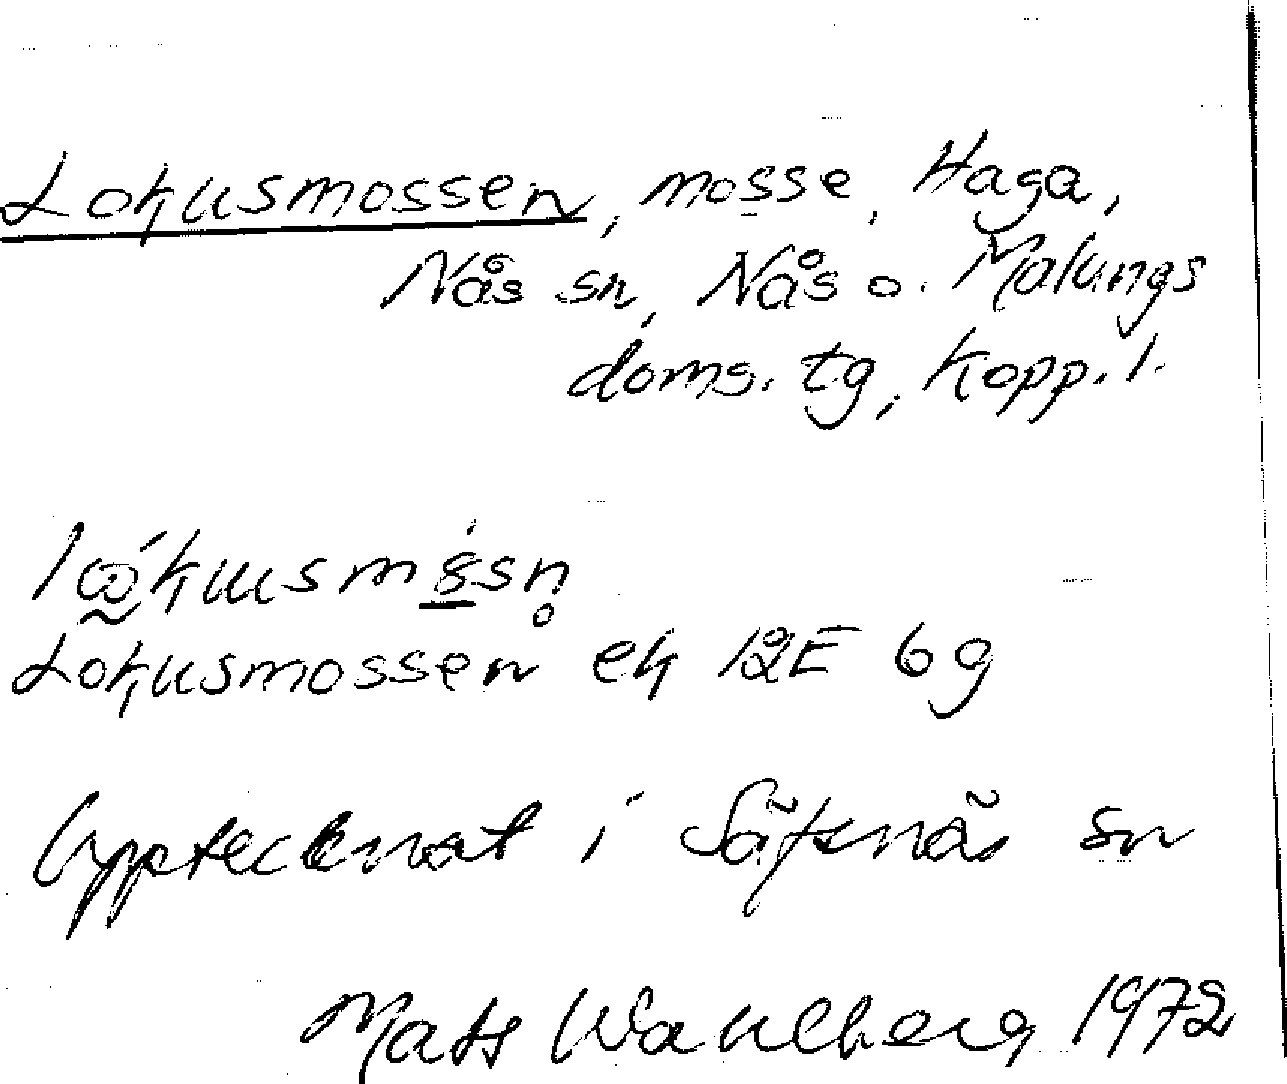 Lokusmossen, mosse, Haga,
Nås sn, Nås o. Malungs
doms. tg, Kopp. l.
Lokusmossen ek 12E 6g
Upptecknat i Säfsnäs sn
Mats Wahlberg 1972